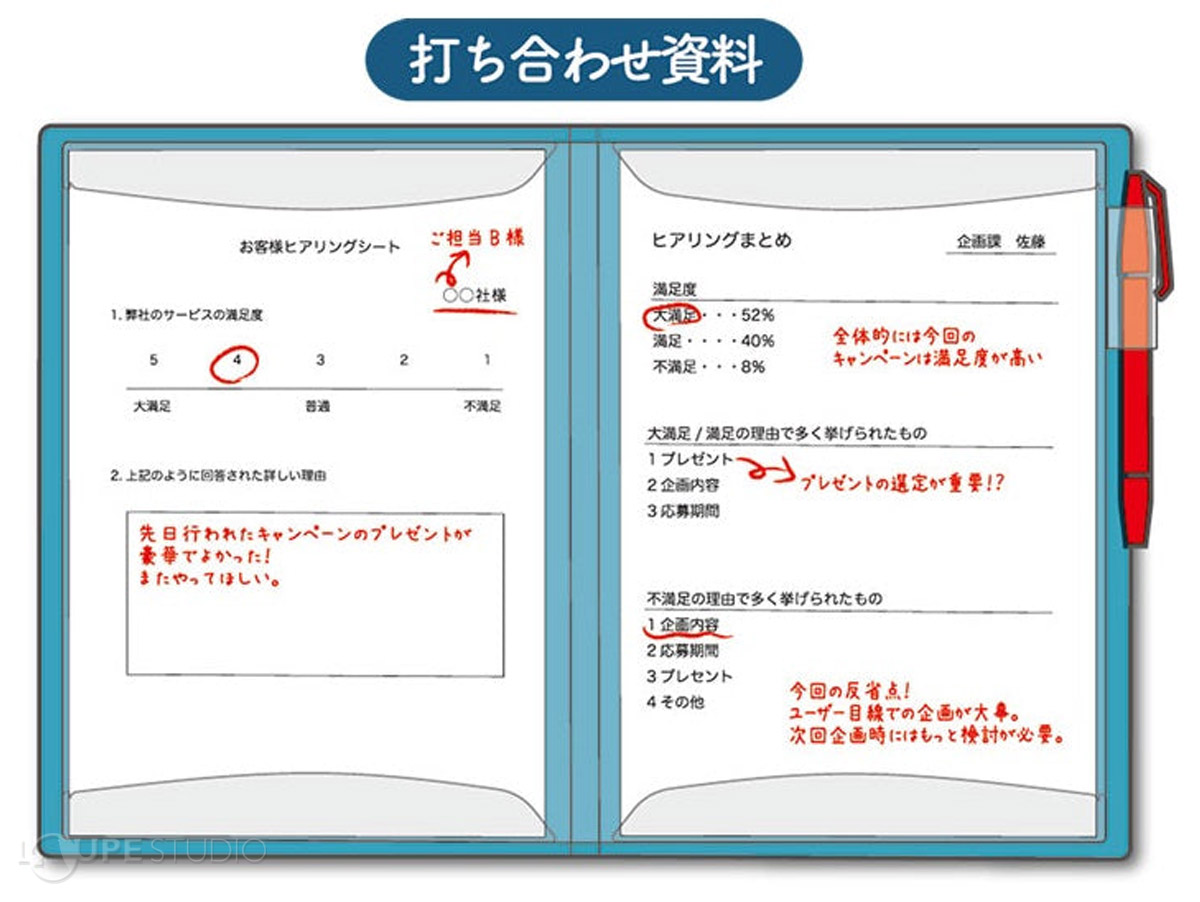 打ち合わせ資料
お客様ヒアリングシート
ご担当B様
○○社様
1. 弊社のサービスの満足度
5 4 3 2 1
大満足 普通 不満足
2. 上記のように回答された詳しい理由
先日行われたキャンペーンのプレゼントが
豪華でよかった!
またやってほしい。
ヒアリングまとめ
企画課 佐藤
満足度
大満足・・・52%
満足・・・・40%
不満足・・・8%
全体的には今回の
キャンペーンは満足度が高い
大満足 / 満足の理由で多く挙げられたもの
1 プレゼント
2 企画内容
3 応募期間
プレゼントの選定が重要!?
不満足の理由で多く挙げられたもの
1 企画内容
2 応募期間
3 プレゼント
4 その他
今回の反省点!
ユーザー目線での企画が大事。
次回企画時にはもっと検討が必要。
LOUPE STUDIO